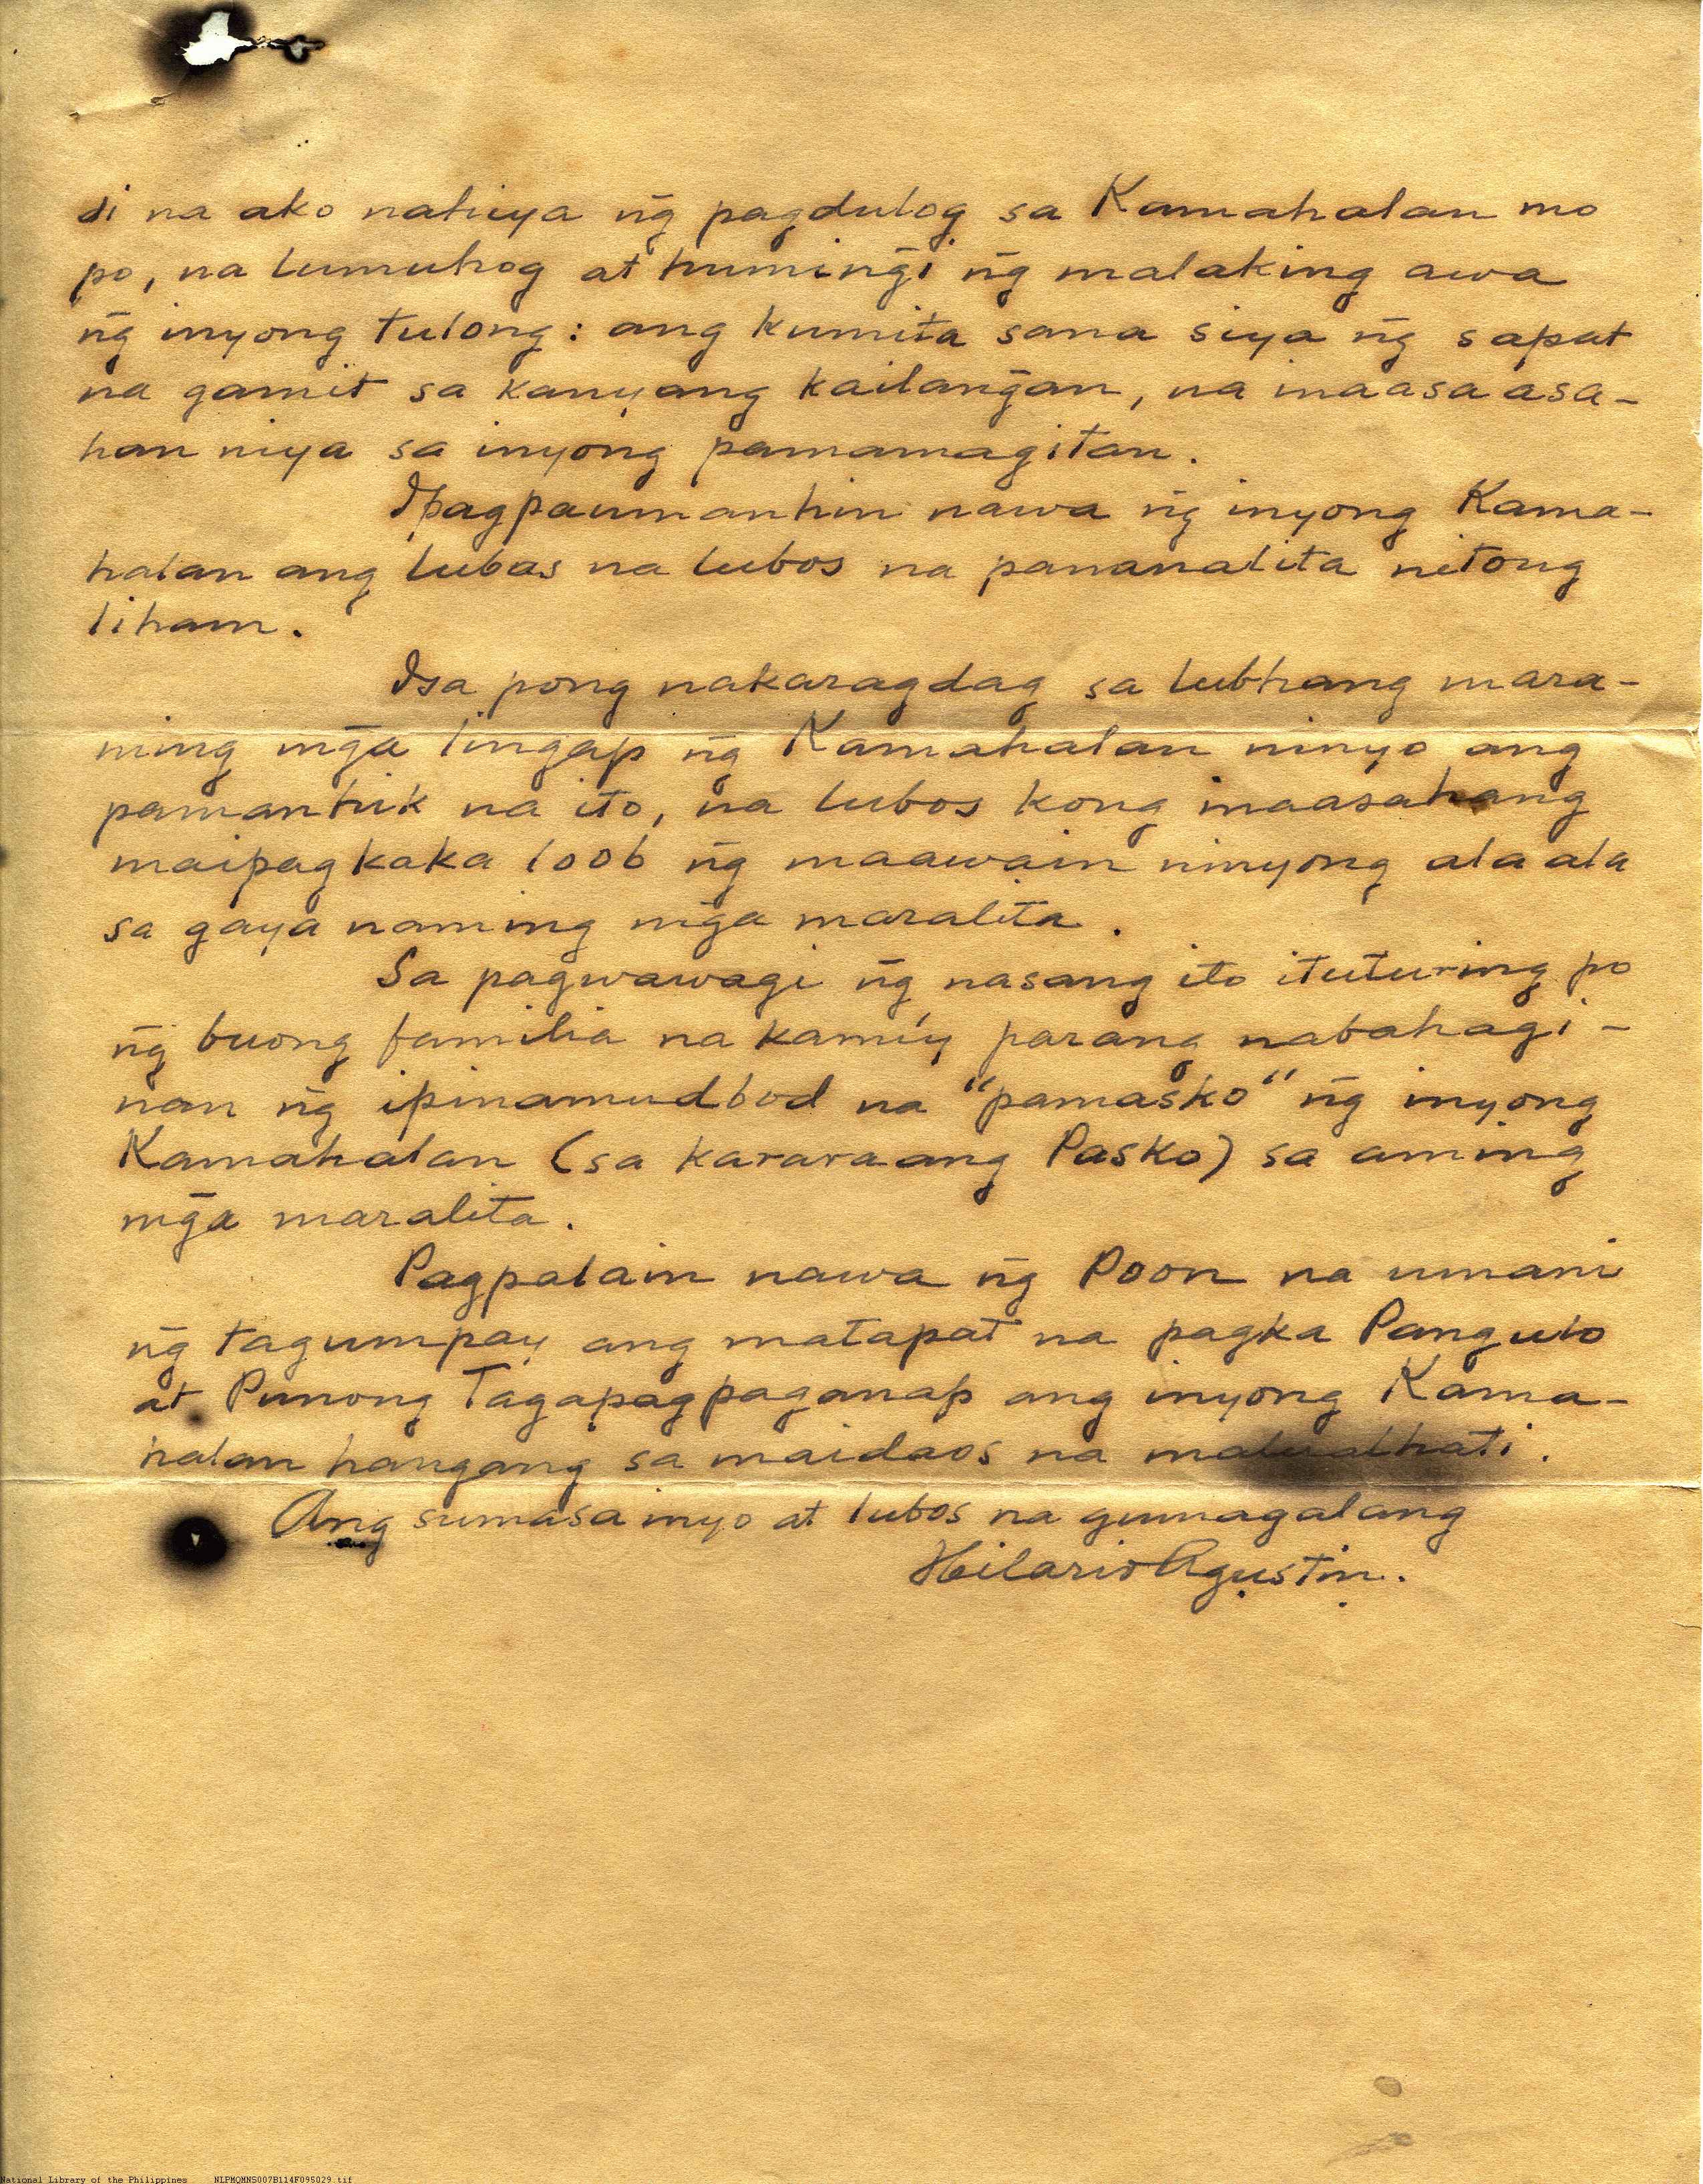 di na ako nahiya ng̃ pagdulog sa Kamahalan mo
po, na lumuhog at huming̃i ng̃ malaking awa
ng̃ inyong tulong: ang kumita sana siya ng̃ sapat
na gamit sa kanyang kailang̃an, na inaasaasa-
han niya sa inyong pamamagitan.
Ipagpaumanhin nawa ng̃ inyong Kama-
halan ang lubas na lubos na pananalita nitong
liham.
Isa pong nakaragdag sa lubhang mara-
ming mg̃a lingap ng̃ Kamahalan ninyo ang
pamanhik na ito, na lubos kong inaasahang
maipagkaka loob ng̃ maawain ninyong ala ala
sa gaya naming mg̃a maralita.
Sa pagwawagi ng̃ nasang ito ituturing po
ng̃ buong familia na kami'y parang nabahagi-
nan ng̃ ipinamudbod na "pamasko" ng̃ inyong
Kamahalan (sa kararaang Pasko) sa aming
mg̃a maralita.
Pagpalain nawa ng̃ Poon na umani
ng̃ tagumpay ang matapat na pagka Pangulo
at Punong Tagapagpaganap ang inyong Kama-
halan hangang sa maidaos na malualhati.
Ang sumasa inyo at lubos na gumagalang
Hilario Agustin.
National Library of the Philippines NLPMQMNS007B114F095029.tif